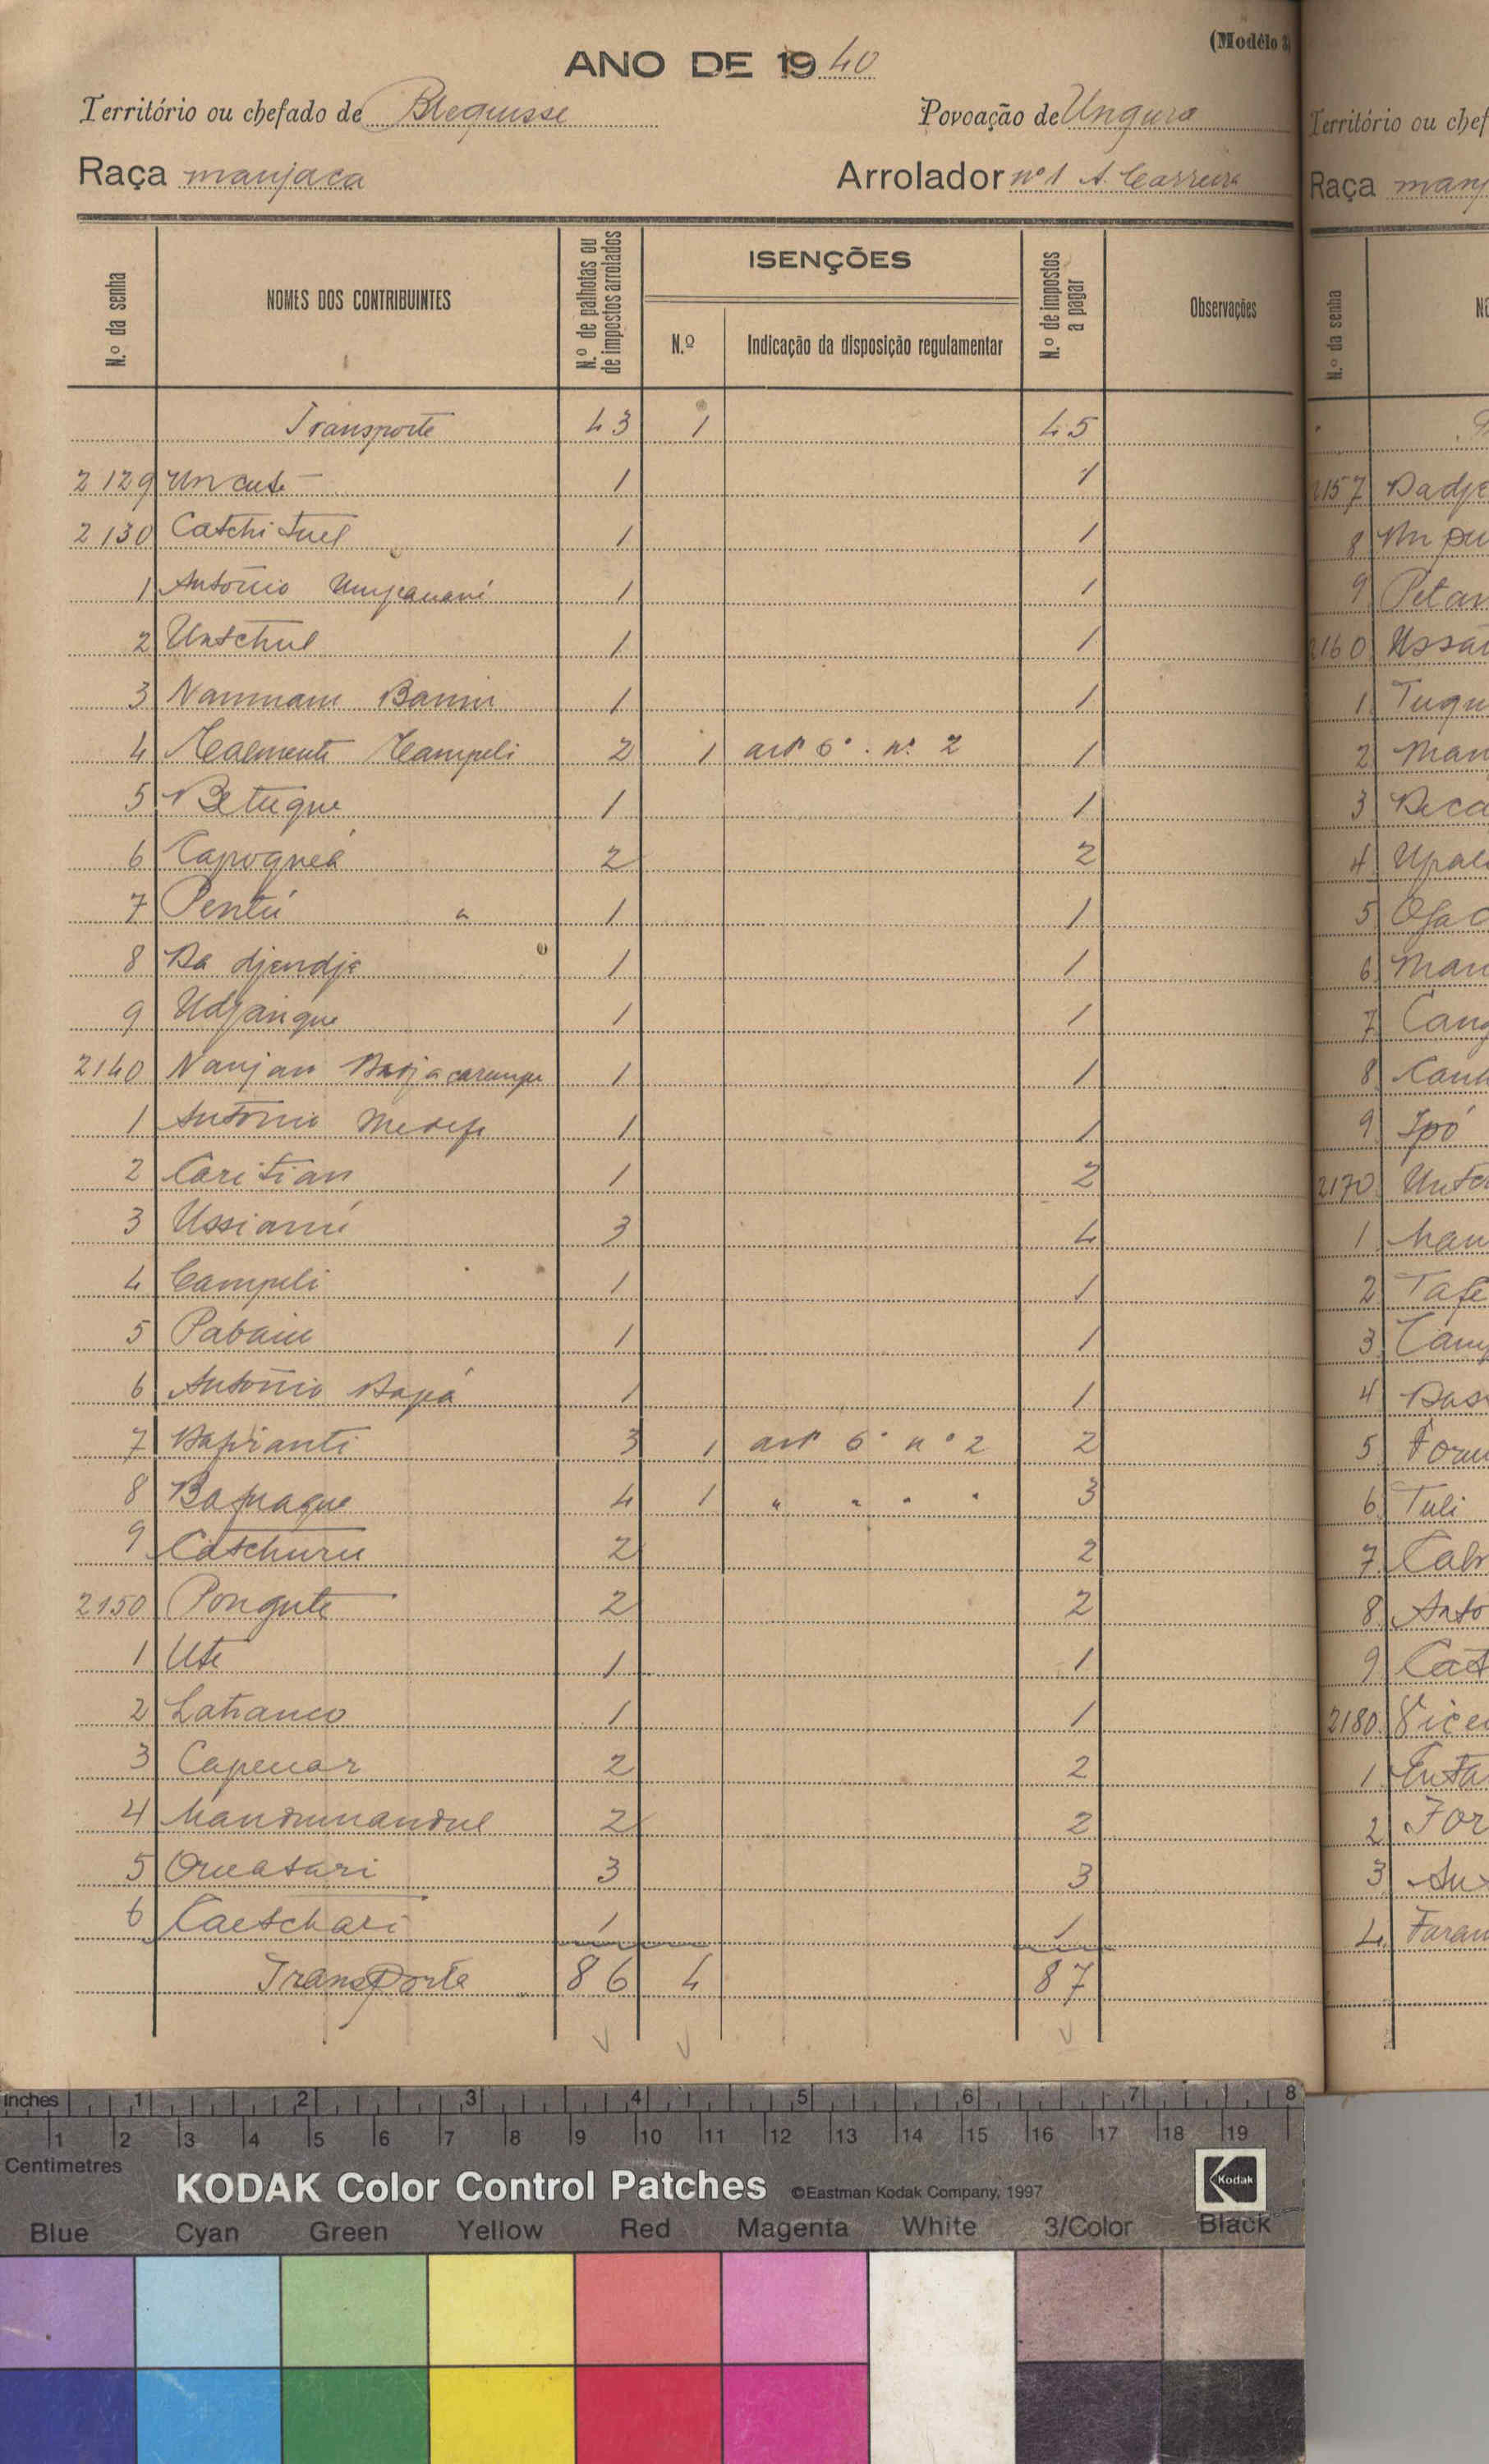 (Modêlo 3
ANO DE 1940
Território ou chefado de Blequisse Povoação de Ungura
Raça manjaca Arrolador nº 1 A. Carreira
N.º da senha NOMES DOS CONTRIBUINTES N.º de palhotas ou de impostos arrolados ISENÇÕES N.º Indicação da disposição regulamentar N.º de impostos a pagar Observações
Transporte 43 1 45
2129 Uncute 1 1
2130 Catchituel 1 1
1 António 1 1
2 Untchul 1 1
3 Nammam 1 1
4 Campeli 2 1 artº 6º. nº 2 1
5 Betuque 1 1
6 2 2
7 Pentú 1 1
8 Ba djendje 1 1
9 Udjanque 1 1
2140 Nanjan 1 1
1 António 1 1
2 Caritian 1 2
3 3 4
4 Campeli 1 1
5 Pabaiu 1 1
6 António Bapá 1 1
7 3 1 artº 6º nº 2 2
8 4 1 " " " " 3
9 Catchuru 2 2
2150 Pongute 2 2
1 Ute 1 1
2 Latranco 1 1
3 Capenar 2 2
4 2 2
5 3 3
6 1 1
Transporte 86 4 87
Território ou chef
Raça manj
N.º da senha
2157 Badje
8
9 Petan
2160 Ussai
1 Tuqu
2 Man
3 Beca
4 Upal
5
6 Man
7 Cang
8 Canh
9 Ipó
2170 Untc
1
2 Tafe
3 Camp
4 Bas
5
6 Tuli
7 Cab
8 Anto
9 Cat
2180 Vice
1
2 For
3
4 Faran
inches 1 2 3 4 5 6 7 8
1 2 3 4 5 6 7 8 9 10 11 12 13 14 15 16 17 18 19
Centimetres
KODAK Color Control Patches ©Eastman Kodak Company, 1997 Kodak
Blue Cyan Green Yellow Red Magenta White 3/Color Black